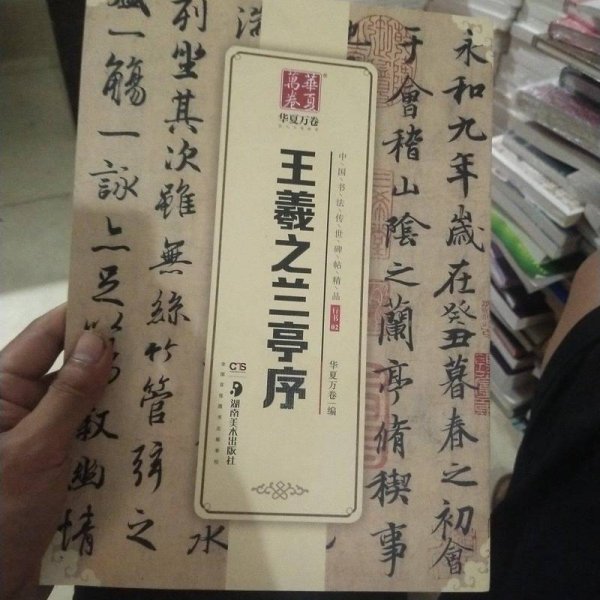 永和九年歲在癸丑暮春之初會
于會稽山陰之蘭亭脩稧事
華夏
萬卷
华夏万卷
中国书法传世碑帖精品
行书02
王羲之兰亭序
华夏万卷 编
CS
湖南美术出版社
列坐其次雖無絲竹管弦之
一觴一詠亦足以暢敘幽情
水